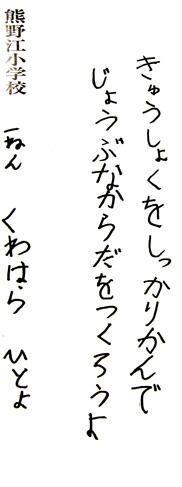 きゅうしょくをしっかりかんで
じょうぶなからだをつくろうよ
熊野江小学校
一ねん くわはら ひとよ